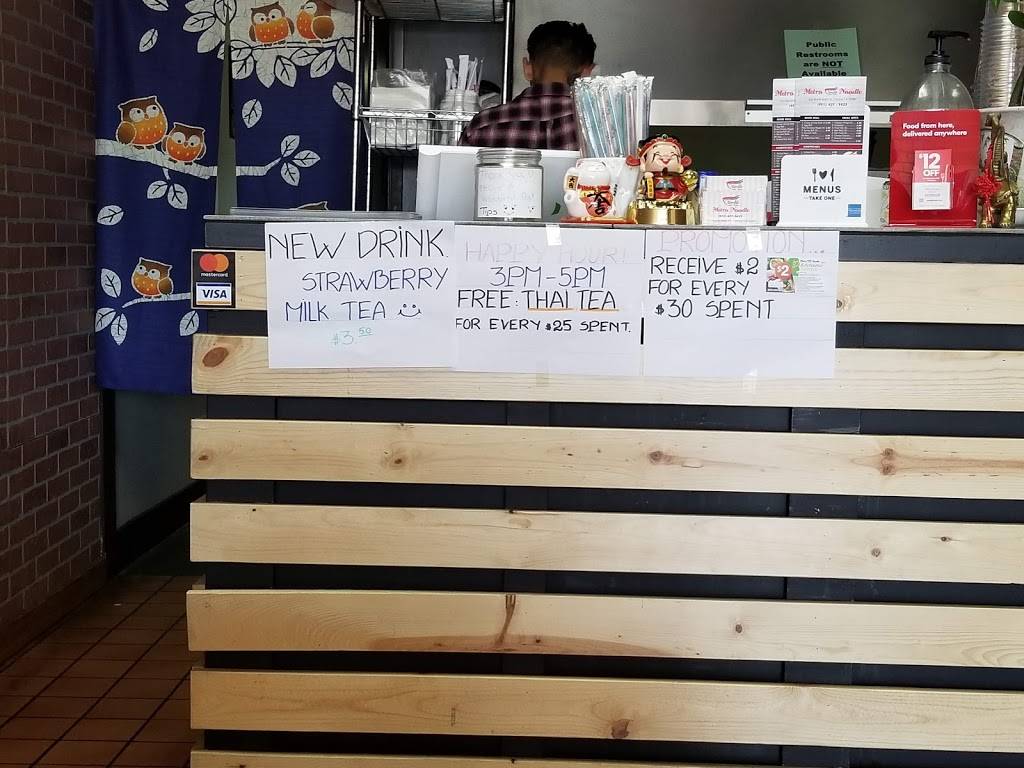 Public
Restrooms
are NOT
Available
Metro Noodle
MENUS
TAKE ONE
Food from here,
delivered anywhere
$12
OFF
Metro Noodle
Tips
mastercard
VISA
NEW DRINK.
STRAWBERRY
MILK TEA
$3.50
HAPPY HOUR!
3PM-5PM
FREE: THAI TEA
FOR EVERY $25 SPENT.
PROMOTION...
RECEIVE $2
FOR EVERY
$30 SPENT
$2